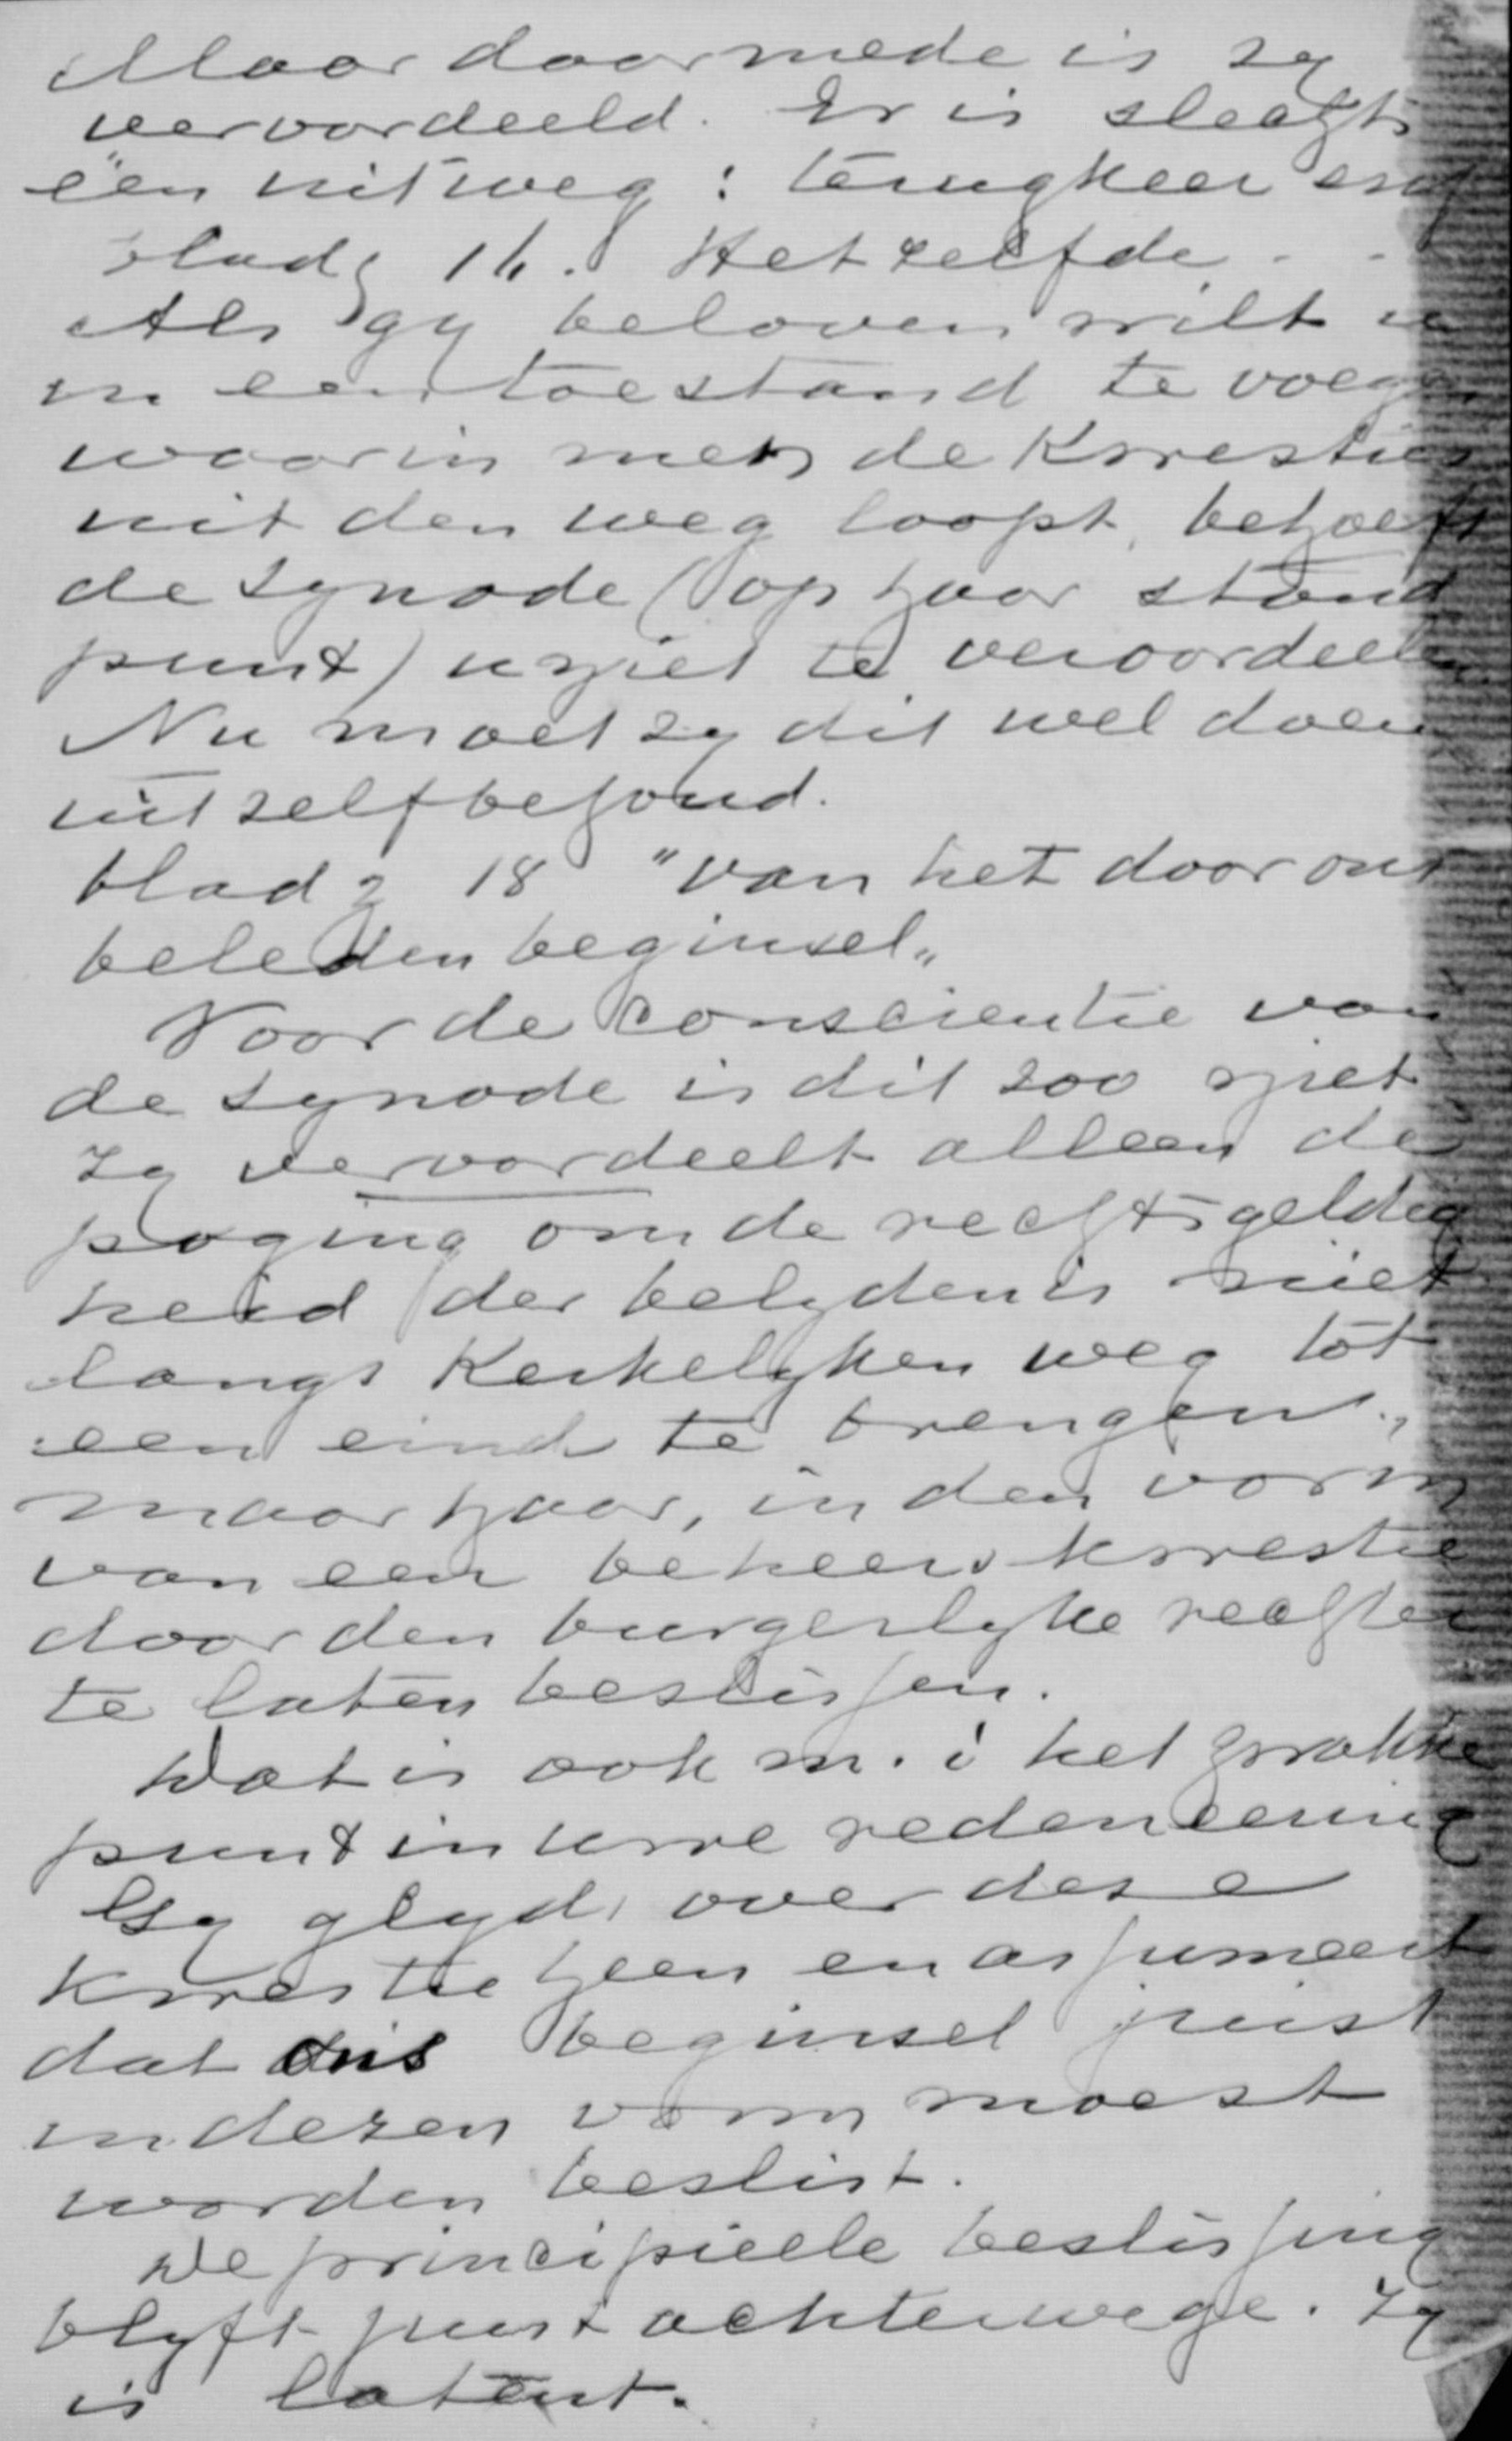 Maar daarmede is zy
veroordeeld. Er is slechts
één uitweg: terugkeer enz
bladz 16. Hetzelfde - -
Als gy beloven wilt u
in een toestand te voegen
waarin men de Kwesties
uit den weg loopt, behoeft
de synode (op haar stand
punt) u niet te veroordeelen.
Nu moet zy dit wel doen
uit zelfbehoud.
bladz 18 "van het door ons
beleden beginsel„
Voor de conscientie van
de synode is dit zoo niet
Zy veroordeelt alleen de
poging om de rechtsgeldig
heid der belydenis niet
langs Kerkelyken weg tot
een eind te brengen,
maar haar, in den vorm
van een beheers kwestie
door den burgerlyke rechter
te laten beslissen.
Dat is ook m. i het zwakke
punt in uwe redeneering
Gy glydt over deze
kwestie heen en argumeert
dat ons beginsel juist
in dezen vorm moest
worden beslist.
De principieele beslissing
blyft juist achterwege. Zy
is latent.